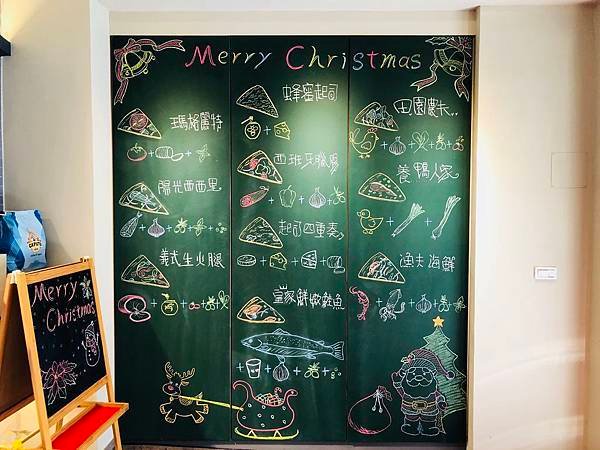 Merry Christmas
瑪格麗特
陽光西西里
義式生火腿
蜂蜜起司
西班牙臘腸
起司四重奏
當家鮮嫩鮭魚
田園農夫
養鴨人家
漁夫海鮮
Merry
Christmas